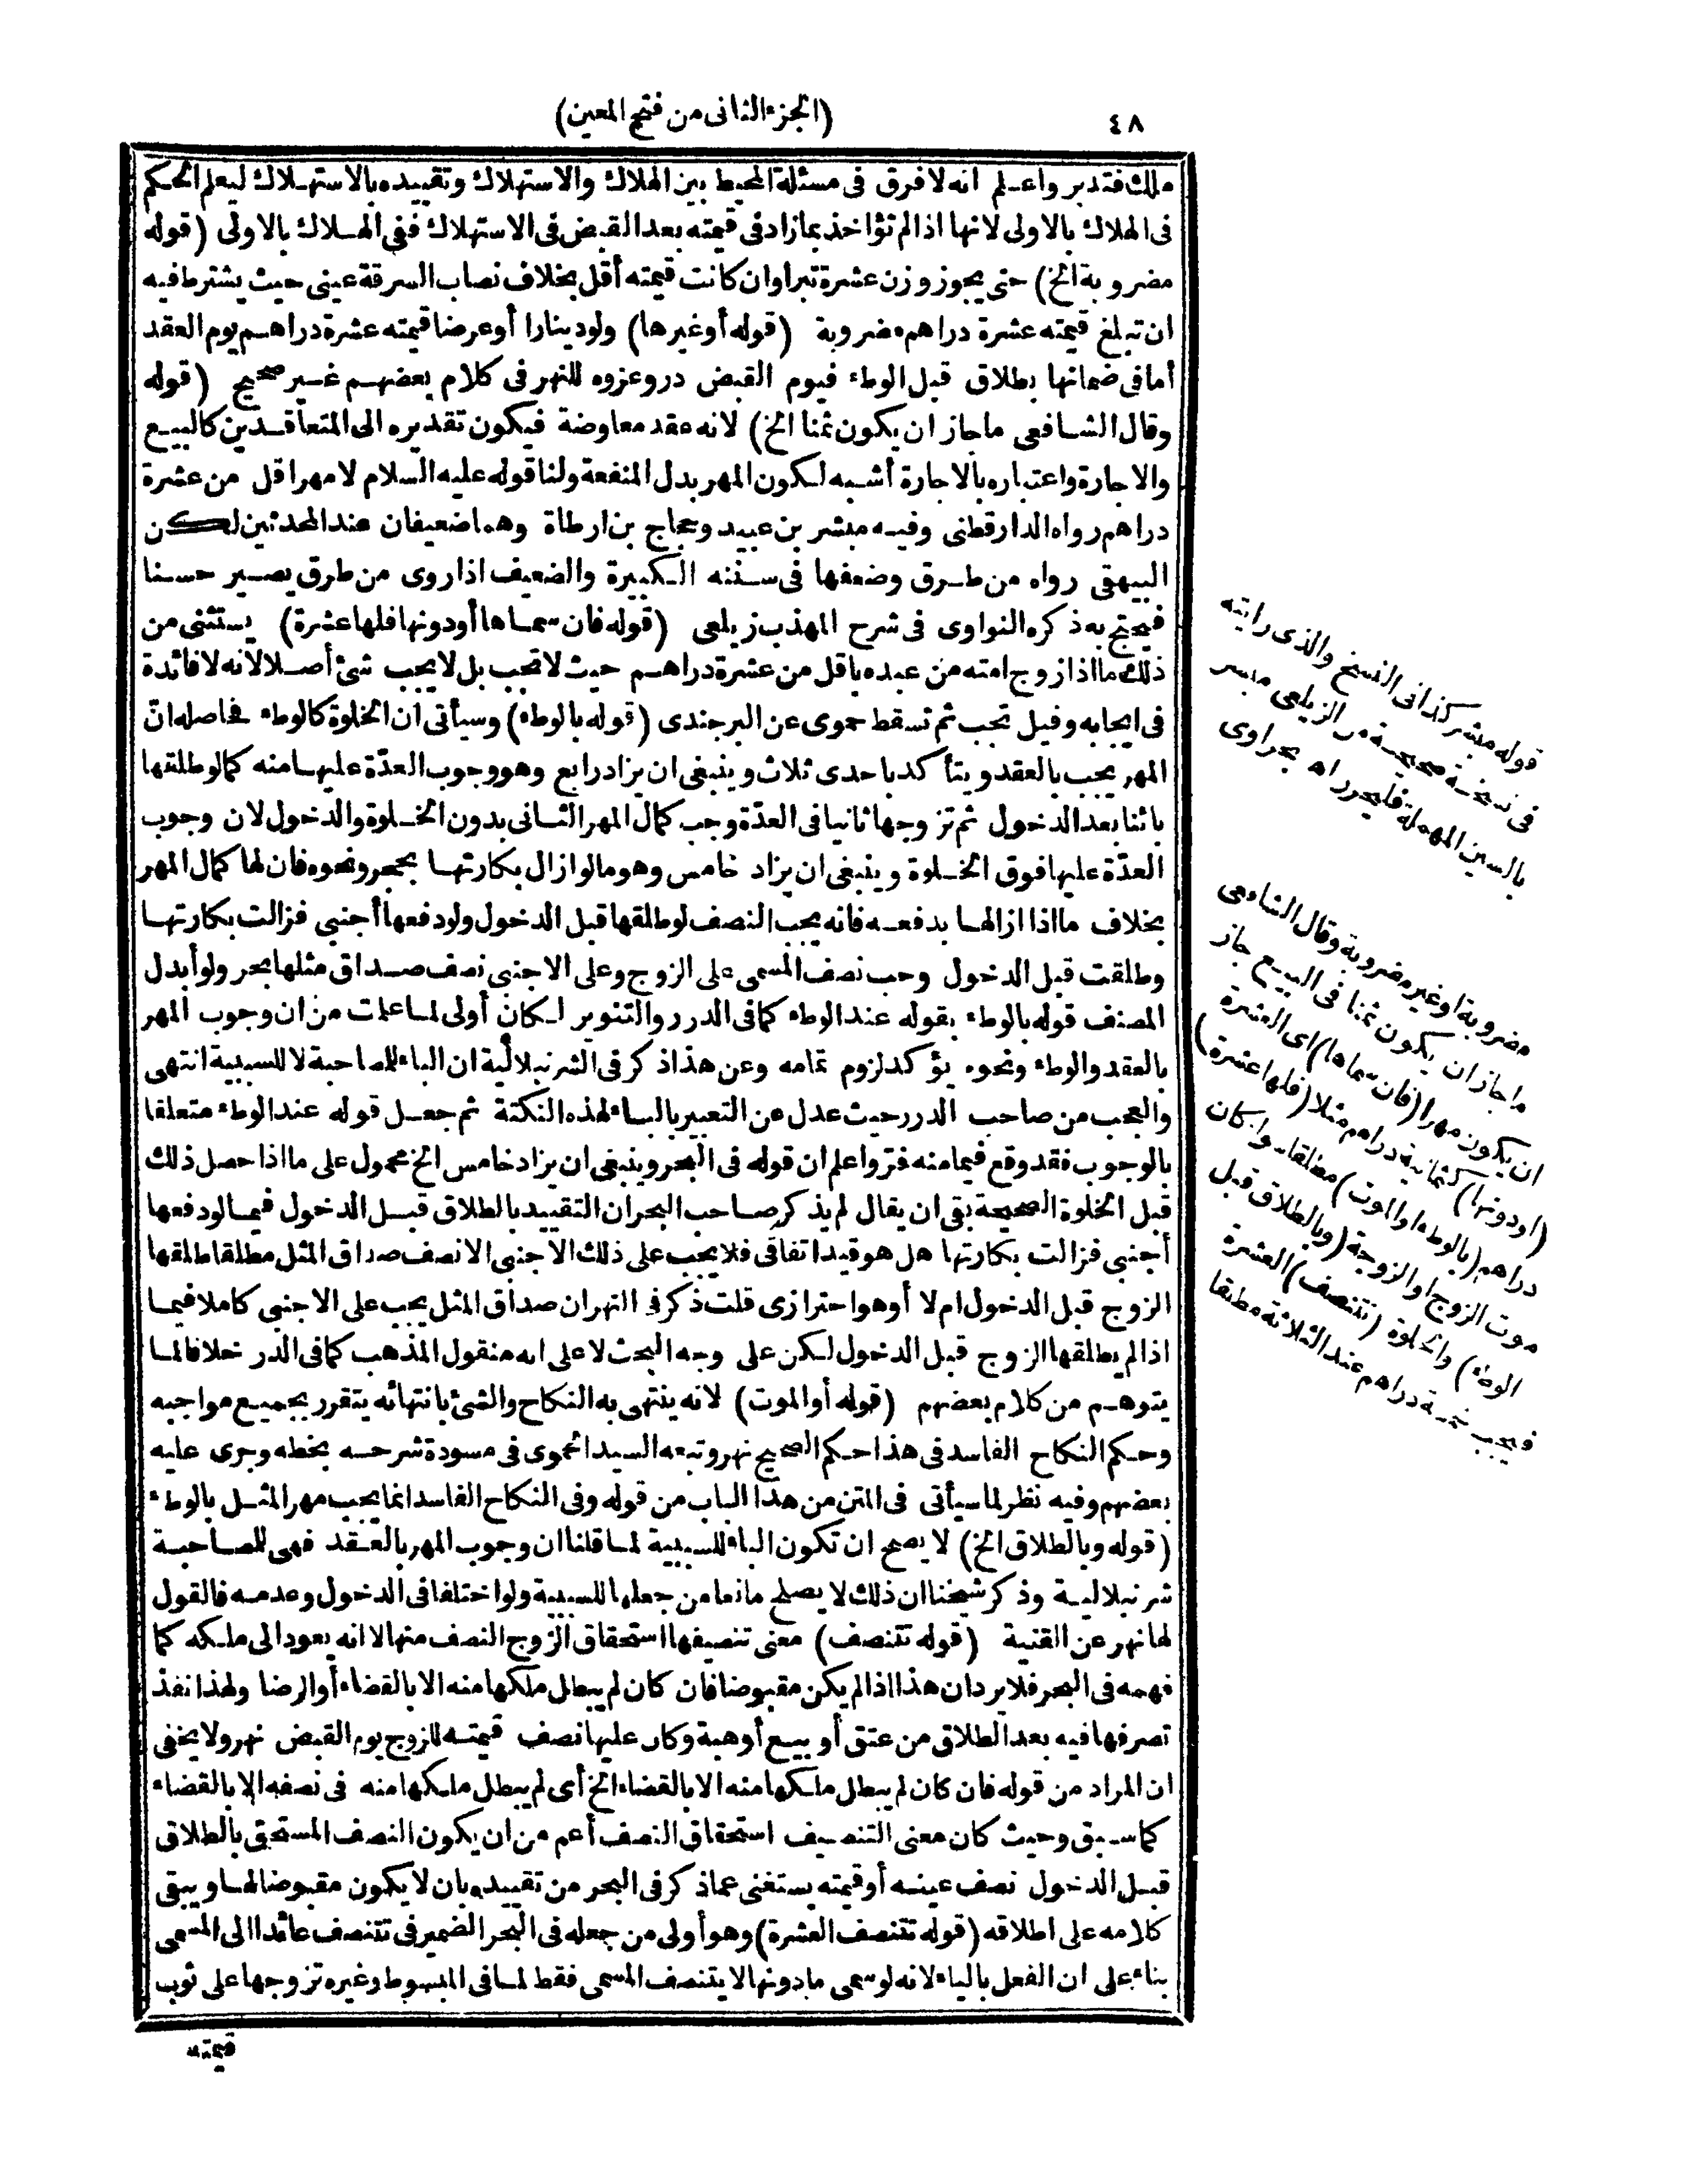 ٤٨
(الجزء الثانى من فتح المعين)
ملك فتدبر واعلم انه لا فرق فى مسئلة المحيط بين الهلاك والاستهلاك وتقييده بالاستهلاك ليعلم الحكم
فى الهلاك بالاولى لانها اذا لم تؤاخذ بما زاد فى قيمته بعد القبض فى الاستهلاك ففى الهلاك بالاولى (قوله
مضروبة الخ) حتى يجوز وزن عشرة تبرا وان كانت قيمته أقل بخلاف نصاب السرقة عينى حيث يشترط فيه
ان تبلغ قيمته عشرة دراهم مضروبة (قوله أو غيرها) ولو دينارا أو عرضا قيمته عشرة دراهم يوم العقد
أما فى ضمانها بطلاق قبل الوطء فيوم القبض در وعزوه للنهر فى كلام بعضهم غير صحيح (قوله
وقال الشافعى ما جاز ان يكون ثمنا الخ) لانه عقد معاوضة فيكون تقديره الى المتعاقدين كالبيع
والاجارة واعتباره بالاجارة أشبه لكون المهر بدل المنفعة ولنا قوله عليه السلام لا مهر اقل من عشرة
دراهم رواه الدارقطنى وفيه مبشر بن عبيد وحجاج بن ارطاة وهما ضعيفان عند المحدثين لكن
البيهقى رواه من طرق وضعفها فى سننه الكبيرة والضعيف اذا روى من طرق يصير حسنا
فيحتج به ذكره النواوى فى شرح المهذب زيلعى (قوله فان سماها أو دونها فلها عشرة) يستثنى من
ذلك ما اذا زوج امته من عبده باقل من عشرة دراهم حيث لا تجب بل لا يجب شئ أصلا لانه لا فائدة
فى ايجابه وقيل تجب ثم تسقط حموى عن البرجندى (قوله بالوطء) وسيأتى ان الخلوة كالوطء فحاصله انّ
المهر يجب بالعقد ويتأكد باحدى ثلاث وينبغى ان يزاد رابع وهو وجوب العدّة عليها منه كما لو طلقها
بائنا بعد الدخول ثم تزوجها ثانيا فى العدّة وجب كمال المهر الثانى بدون الخلوة والدخول لان وجوب
العدّة عليها فوق الخلوة وينبغى ان يزاد خامس وهو ما لو ازال بكارتها بحجر ونحوه فان لها كمال المهر
بخلاف ما اذا ازالها بدفعه فانه يجب النصف لو طلقها قبل الدخول ولو دفعها أجنبى فزالت بكارتها
وطلقت قبل الدخول وجب نصف المسمى على الزوج وعلى الاجنبى نصف صداق مثلها بحر ولو أبدل
المصنف قوله بالوطء بقوله عند الوطء كما فى الدرر والتنوير لكان أولى لما علمت من ان وجوب المهر
بالعقد والوطء ونحوه يؤكد لزوم تمامه وعن هذا ذكر فى الشرنبلالية ان الباء للمصاحبة لا للسببية انتهى
والعجب من صاحب الدرر حيث عدل عن التعبير بالباء لهذه النكتة ثم جعل قوله عند الوطء متعلقا
بالوجوب فقد وقع فيما منه فرّ واعلم ان قوله فى البحر وينبغى ان يزاد خامس الخ محمول على ما اذا حصل ذلك
قبل الخلوة الصحيحة بقى ان يقال لم يذكر صاحب البحر ان التقييد بالطلاق قبل الدخول فيما لو دفعها
أجنبى فزالت بكارتها هل هو قيد اتفاقى فلا يجب على ذلك الاجنبى الا نصف صداق المثل مطلقا طلقها
الزوج قبل الدخول ام لا أو هو احترازى قلت ذكر فى النهر ان صداق المثل يجب على الاجنبى كاملا فيما
اذا لم يطلقها الزوج قبل الدخول لكن على وجه البحث لا على انه منقول المذهب كما فى الدر خلافا لما
يتوهم من كلام بعضهم (قوله أو الموت) لانه ينتهى به النكاح والشئ بانتهائه يتقرر بجميع مواجبه
وحكم النكاح الفاسد فى هذا حكم الصحيح نهر وتبعه السيد الحموى فى مسودة شرحه بخطه وجرى عليه
بعضهم وفيه نظر لما سيأتى فى المتن من هذا الباب من قوله وفى النكاح الفاسد انما يجب مهر المثل بالوطء
(قوله وبالطلاق الخ) لا يصح ان تكون الباء للسببية لما قلنا ان وجوب المهر بالعقد فهى للمصاحبة
شرنبلالية وذكر شيخنا ان ذلك لا يصلح مانعا من جعلها للسببية ولو اختلفا فى الدخول وعدمه فالقول
لها نهر عن القنية (قوله تتنصف) معنى تنصيفها استحقاق الزوج النصف منها لا انه يعود الى ملكه كما
فهمه فى البحر فلا يرد ان هذا اذا لم يكن مقبوضا فان كان لم يبطل ملكها منه الا بالقضاء أو الرضا ولهذا نفذ
تصرفها فيه بعد الطلاق من عتق أو بيع أو هبة وكان عليها نصف قيمته للزوج يوم القبض نهر ولا يخفى
ان المراد من قوله فان كان لم يبطل ملكها منه الا بالقضاء الخ أى لم يبطل ملكها منه فى نصفه الا بالقضاء
كما سبق وحيث كان معنى التنصيف استحقاق النصف أعم من ان يكون النصف المستحق بالطلاق
قبل الدخول نصف عينه أو قيمته يستغنى عما ذكر فى البحر من تقييده بان لا يكون مقبوضا لها ويبقى
كلامه على اطلاقه (قوله تتنصف العشرة) وهو أولى من جعله فى البحر الضمير فى تتنصف عائدا الى المسمى
بناء على ان الفعل بالياء لانه لو سمى ما دونها لا يتنصف المسمى فقط لما فى المبسوط وغيره تزوجها على ثوب
قيمته
قوله مبشر كذا فى النسخ والذى رايته
فى نسخة صحيحة من الزيلعى ميسر
بالسين المهملة فليحرر اه بحراوى
مضروبة او غير مضروبة وقال الشافعى
ما جاز ان يكون ثمنا فى البيع جاز
ان يكون مهرا (فان سماها) اى العشرة
(او دونها) كثمانية دراهم مثلا (فلها عشرة)
دراهم (بالوطء او الموت) مطلقا سواء كان
موت الزوج او الزوجة (وبالطلاق قبل
الوطء) والخلوة (تتنصف) العشرة
فيجب خمسة دراهم عند الثلاثة مطلقا